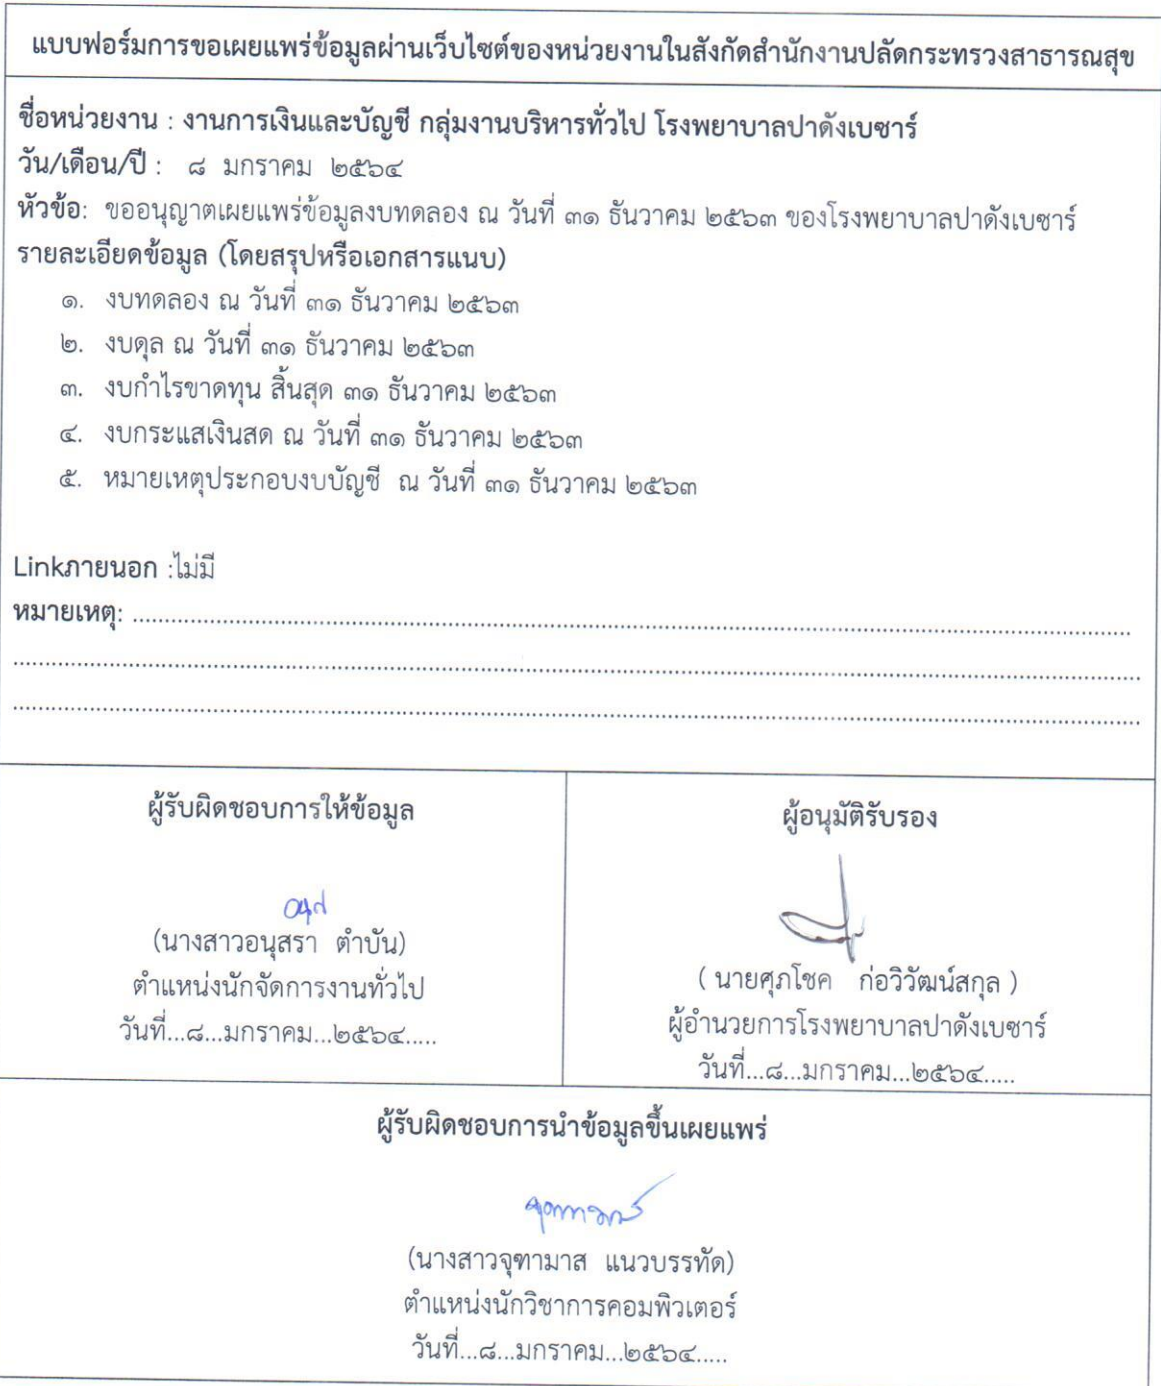 แบบฟอร์มการขอเผยแพร่ข้อมูลผ่านเว็บไซต์ของหน่วยงานในสังกัดสำนักงานปลัดกระทรวงสาธารณสุข
ชื่อหน่วยงาน : งานการเงินและบัญชี กลุ่มงานบริหารทั่วไป โรงพยาบาลปาดังเบซาร์
วัน/เดือน/ปี : ๘ มกราคม ๒๕๖๔
หัวข้อ: ขออนุญาตเผยแพร่ข้อมูลงบทดลอง ณ วันที่ ๓๑ ธันวาคม ๒๕๖๓ ของโรงพยาบาลปาดังเบซาร์
รายละเอียดข้อมูล (โดยสรุปหรือเอกสารแนบ)
๑. งบทดลอง ณ วันที่ ๓๑ ธันวาคม ๒๕๖๓
๒. งบดุล ณ วันที่ ๓๑ ธันวาคม ๒๕๖๓
๓. งบกำไรขาดทุน สิ้นสุด ๓๑ ธันวาคม ๒๕๖๓
๔. งบกระแสเงินสด ณ วันที่ ๓๑ ธันวาคม ๒๕๖๓
๕. หมายเหตุประกอบงบบัญชี ณ วันที่ ๓๑ ธันวาคม ๒๕๖๓
Linkภายนอก :ไม่มี
หมายเหตุ: ........................................................................................................
........................................................................................................
........................................................................................................
ผู้รับผิดชอบการให้ข้อมูล
(นางสาวอนุสรา ตำบัน)
ตำแหน่งนักจัดการงานทั่วไป
วันที่...๘...มกราคม...๒๕๖๔.....
ผู้อนุมัติรับรอง
( นายศุภโชค ก่อวิวัฒน์สกุล )
ผู้อำนวยการโรงพยาบาลปาดังเบซาร์
วันที่...๘...มกราคม...๒๕๖๔.....
ผู้รับผิดชอบการนำข้อมูลขึ้นเผยแพร่
(นางสาวจุฑามาส แนวบรรทัด)
ตำแหน่งนักวิชาการคอมพิวเตอร์
วันที่...๘...มกราคม...๒๕๖๔.....